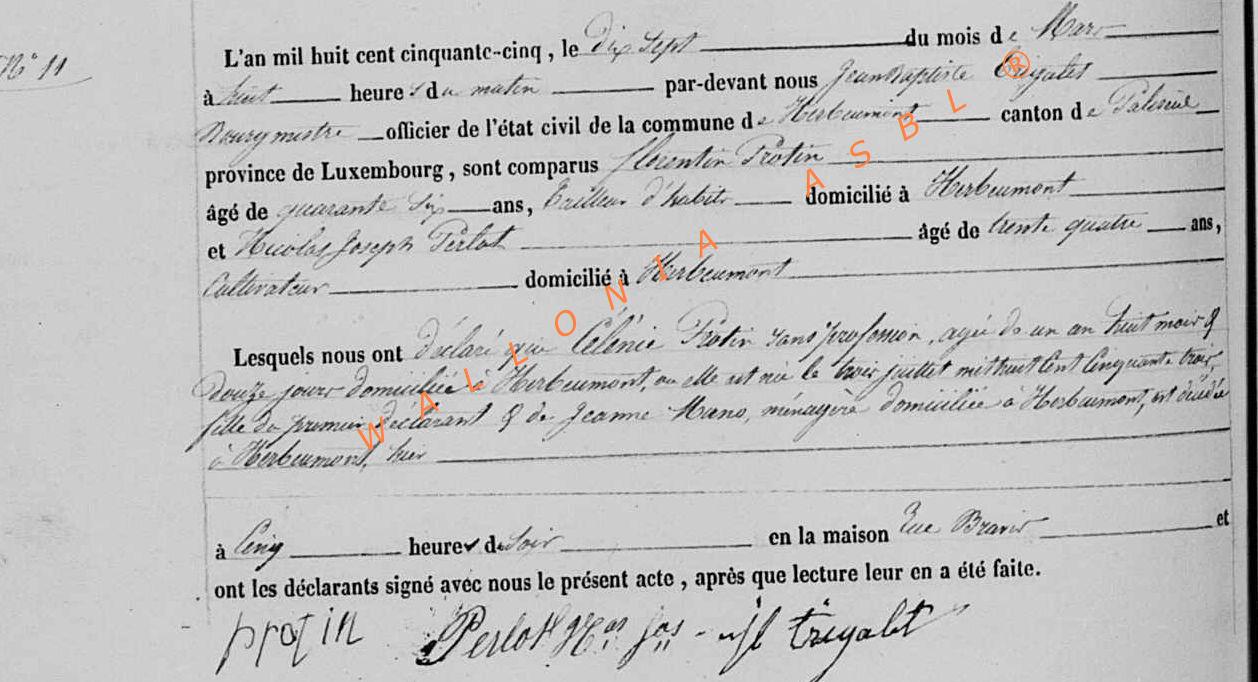 N° 11
L'an mil huit cent cinquante-cinq, le dix sept du mois de Mars
à huit heures du matin par-devant nous Jean Baptiste Trigalet
Bourgmestre officier de l'état civil de la commune de Herbeumont canton de Paliseul
province de Luxembourg, sont comparus florentin Protin
âgé de quarante Six ans, tailleur d'habits domicilié à Herbeumont
et Nicolas Joseph Perlot âgé de trente quatre ans,
Cultivateur domicilié à Herbeumont
Lesquels nous ont déclaré que Célénie Protin sans profession, agée de un an huit mois &
douze jours domiciliée à Herbeumont, ou elle est née le trois juillet mil huit Cent Cinquante trois,
fille du premier déclarant & de Jeanne Mano, ménagère domiciliée à Herbeumont, est décédée
à Herbeumont, hier
à Cinq heures du Soir en la maison Rue et
ont les déclarants signé avec nous le présent acte, après que lecture leur en a été faite.
protin Perlot Nas Jos JB Trigalet
WALLONIA ASBL ®